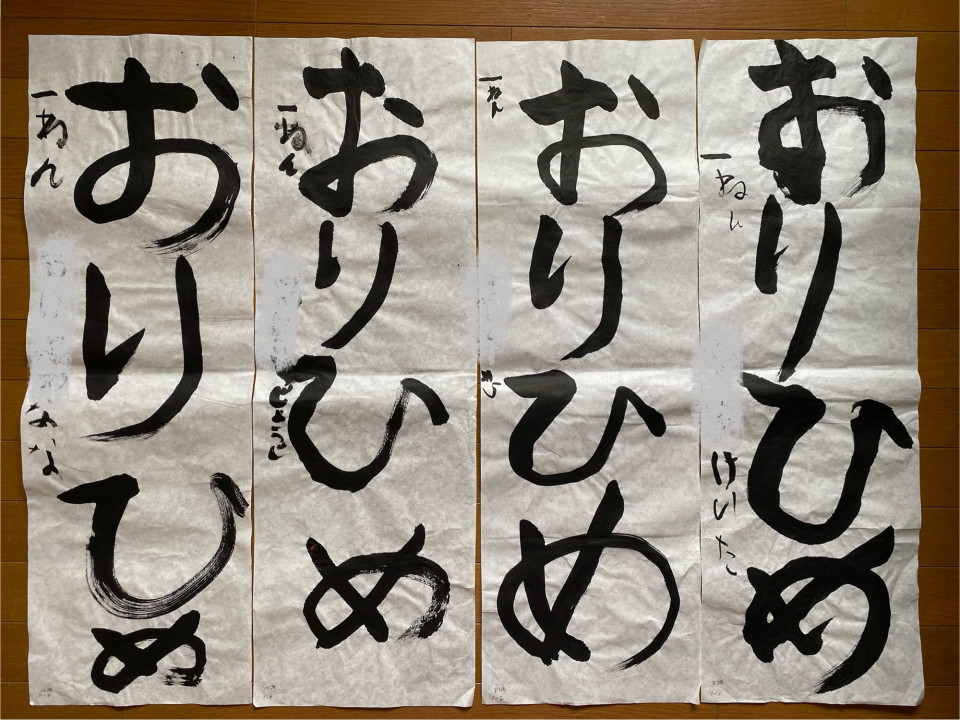 おりひめ
一ねん
けいた
おりひめ
一ねん
おりひめ
一ねん
おりひめ
一ねん